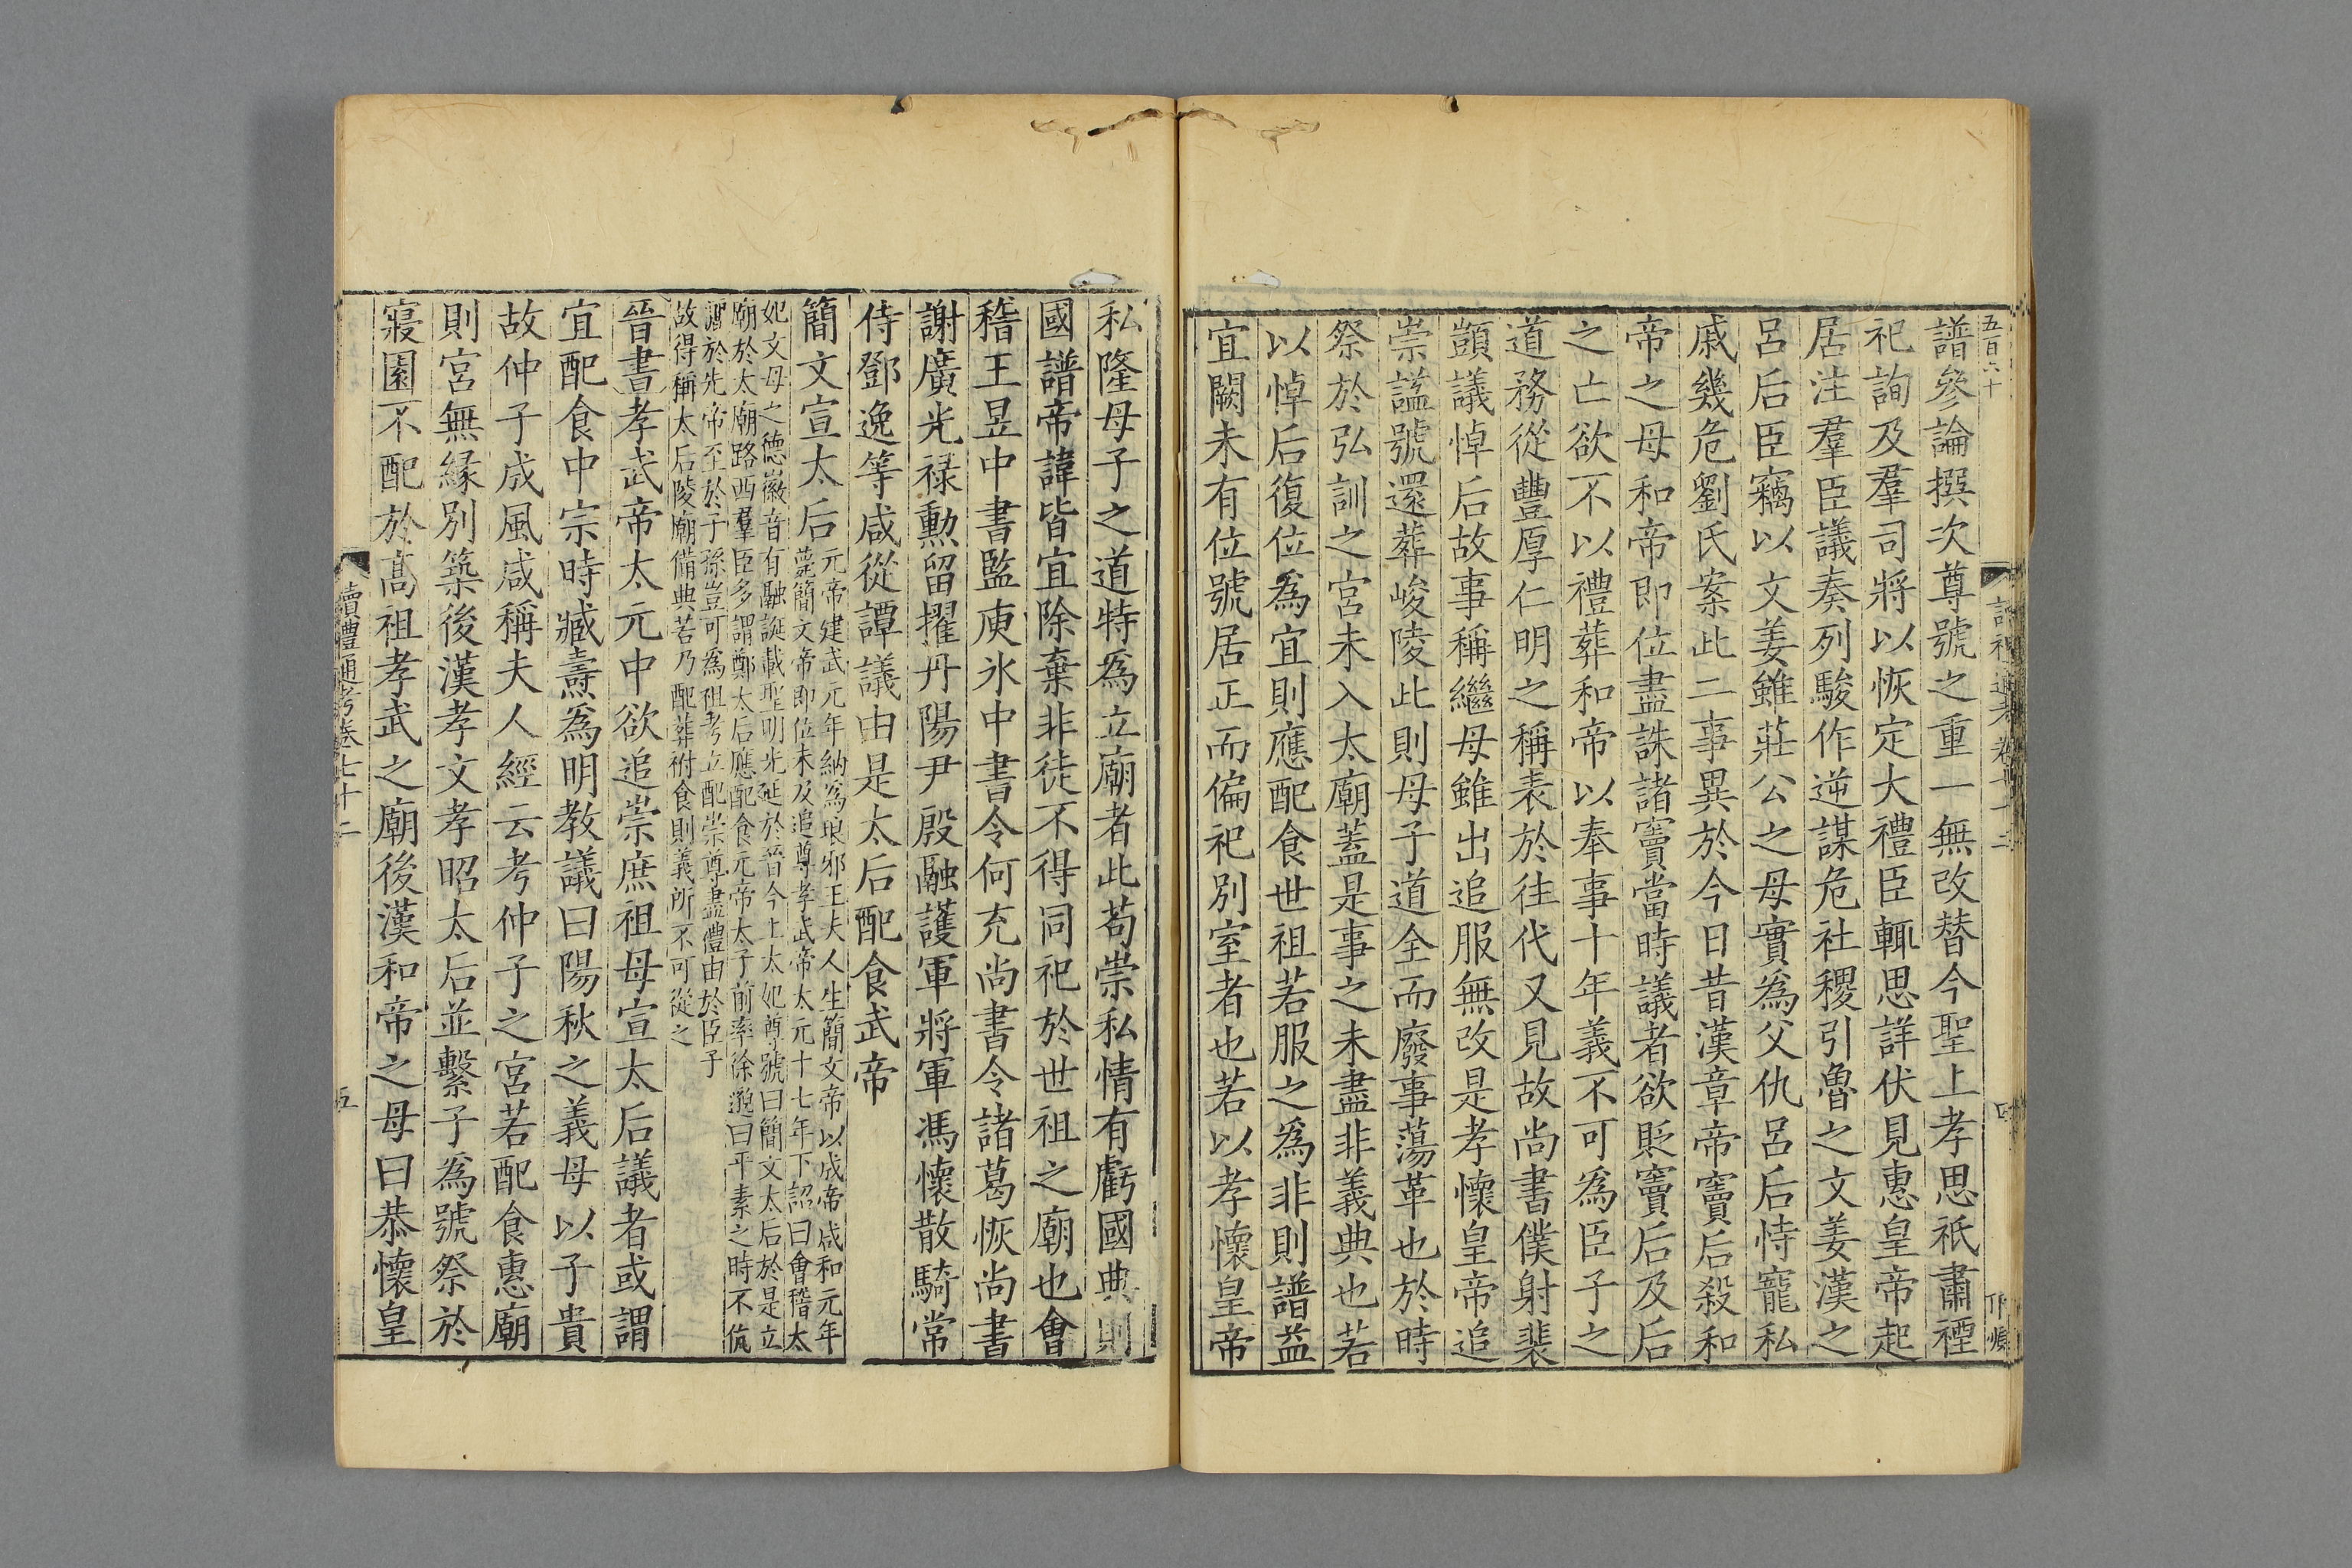 五百六十
譜參論撰次尊號之重一無改替今聖上孝思祇肅禋
祀詢及羣司將以恢定大禮臣輒思詳伏見惠皇帝起
居注羣臣議奏列駿作逆謀危社稷引魯之文姜漢之
呂后臣竊以文姜雖莊公之母實為父仇呂后恃寵私
戚幾危劉氏案此二事異於今日昔漢章帝竇后殺和
帝之母和帝即位盡誅諸竇當時議者欲貶竇后及后
之亡欲不以禮葬和帝以奉事十年義不可為臣子之
道務從豐厚仁明之稱表於往代又見故尚書僕射裴
頠議悼后故事稱繼母雖出追服無改是孝懷皇帝追
崇謚號還葬峻陵此則母子道全而廢事蕩革也於時
祭於弘訓之宮未入太廟蓋是事之未盡非義典也若
以悼后復位為宜則應配食世祖若服之為非則譜益
宜闕未有位號居正而偏祀別室者也若以孝懷皇帝
私隆母子之道特為立廟者此苟崇私情有虧國典則
國譜帝諱皆宜除棄非徒不得同祀於世祖之廟也會
稽王昱中書監庾氷中書令何充尚書令諸葛恢尚書
謝廣光祿勳留擢丹陽尹殷融護軍將軍馮懷散騎常
侍鄧逸等咸從譚議由是太后配食武帝
簡文宣太后
元帝建武元年納為琅邪王夫人生簡文帝以成帝咸和元年
薨簡文帝即位未及追尊孝武帝太元十七年下詔曰會稽太
妃文母之德徽音有融誕載聖明光延於晉今上太妃尊號曰簡文太后於是立
廟於太廟路西羣臣多謂鄭太后應配食元帝太子前率徐邈曰平素之時不伉
儷於先帝至於子孫豈可為祖考立配崇尊盡禮由於臣子
故得稱太后陵廟備典若乃配葬祔食則義所不可從之
晉書孝武帝太元中欲追崇庶祖母宣太后議者或謂
宜配食中宗時臧燾為明教議曰陽秋之義母以子貴
故仲子成風咸稱夫人經云考仲子之宮若配食惠廟
則宮無緣別築後漢孝文孝昭太后並繫子為號祭於
寢園不配於高祖孝武之廟後漢和帝之母曰恭懷皇
讀禮通考卷七十二
五